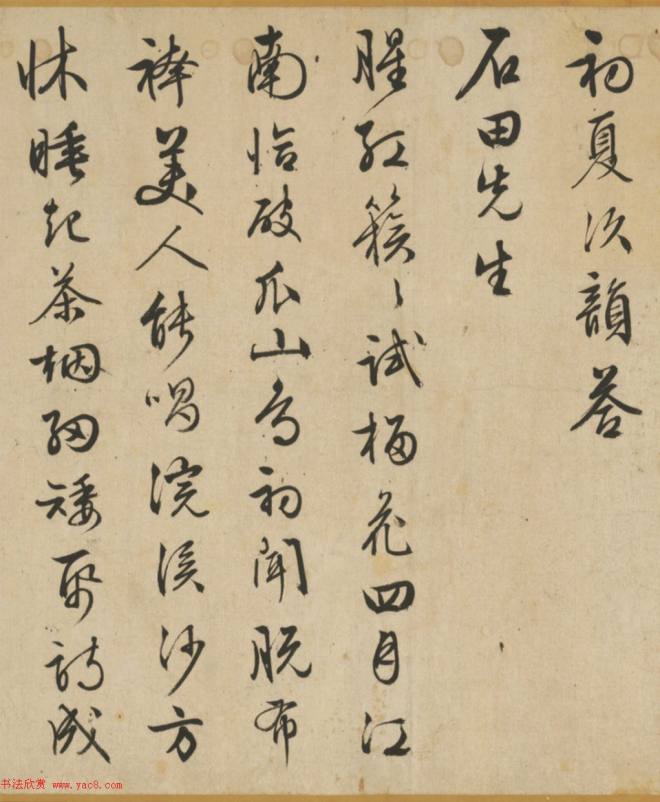 初夏次韻答
石田先生
腥紅簇〻試榴花四月江
南恰破瓜山鳥初聞脫布
袴美人能唱浣溪沙方
牀睡起茶烟細矮帋詩成
书法欣赏 www.yac8.com